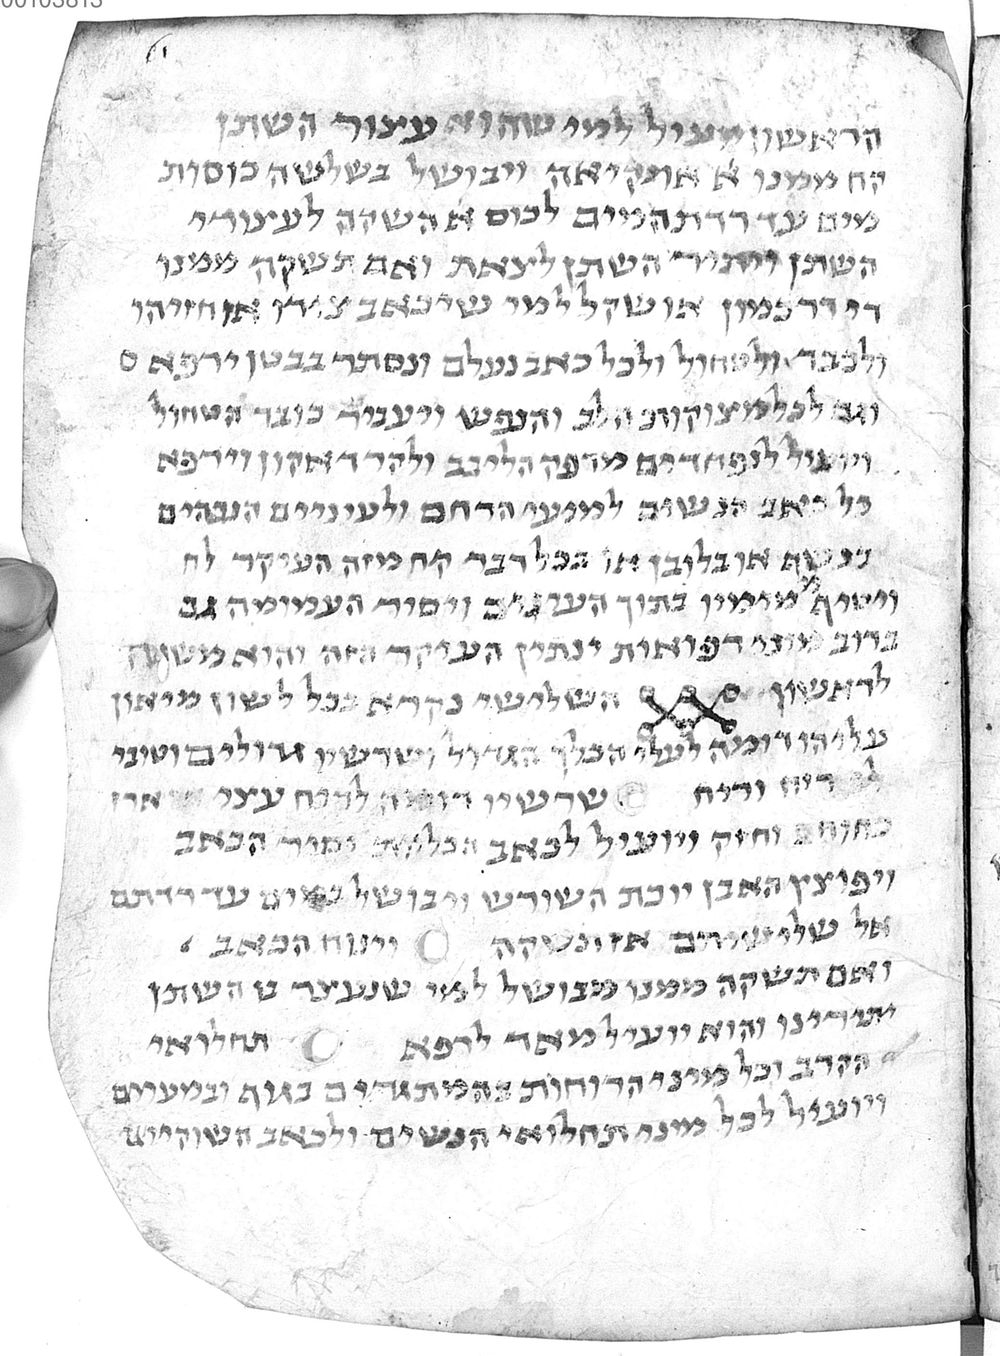 הראשון מועיל למי שהוא עצור השתן
קח ממנו א אונקיאה ויבושל בשלשה כוסות
מים עד רדת המים לכוס א השקה לעצורי
השתן ויתיר השתן לצאת ואם תשקה ממנו
די דרכמון או שקל למי שיכאב צידו או חזיהו
ולכבד ולטחול ולכל כאב נעלם ונסתר בבטן ירפא
וגם לכל מצוקות הלב והנפש ויעביר כובד הטחול
ויועיל לנפחדים מדפק הליבב ולהרדאקון וירפא
כל כאב הנשים למנעי הרחם ולעיניים הגבהים
או בלובן או בכל דבר קח מזה העיקר לח
ויטיף מימיו בתוך העינים ויסור העמימה גם
ברוב מיני רפואות ינתין העיקר הזה והוא משנה
לראשון השלישי נקרא בכל לשון מיאון
עליהו דומה לעלי הכלך הגדול ושרשיו גדולים
וריח שרשיו דומה לריח עצי
וחזק ויועיל לכאב הכליות יסור הכאב
ויפוצץ האבן יוכת השורש ויבושל במים עד רדתם
אל שלישיתם אז תשקה וינוח הכאב
ואם תשקה ממנו מבושל למי שנעצר ש השתן
יתירינו והוא יועיל מאד לרפא תחלואי
הקרב וכל מיני הרוחות המתגדים בגוף ובמעיים
ויועיל לכל מיני תחלואי הנשים ולכאב השוקיים